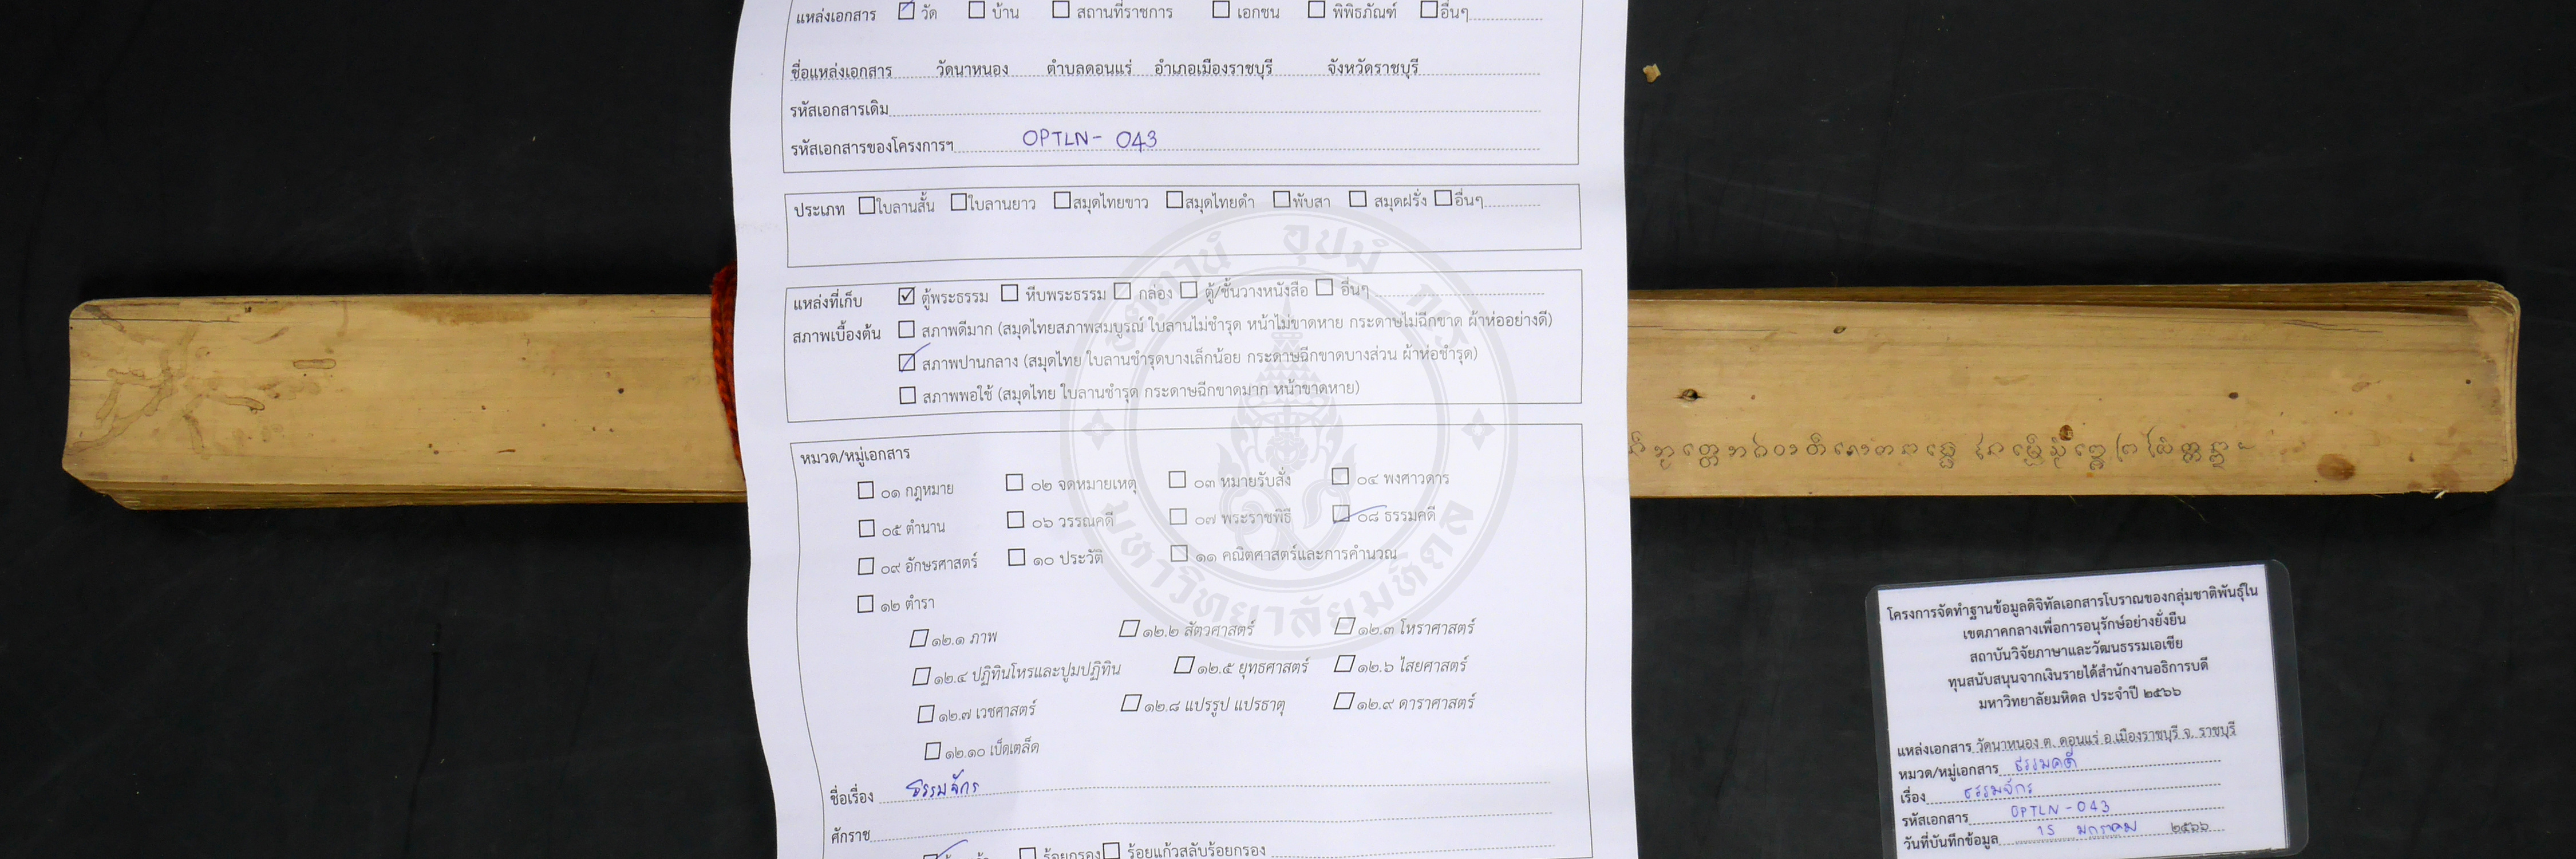 แหล่งเอกสาร วัด บ้าน สถานที่ราชการ เอกชน พิพิธภัณฑ์ อื่นๆ
ชื่อแหล่งเอกสาร วัดนาหนอง ตำบลดอนแร่ อำเภอเมืองราชบุรี จังหวัดราชบุรี
รหัสเอกสารเดิม
รหัสเอกสารของโครงการฯ OPTLN- 043
ประเภท ใบลานสั้น ใบลานยาว สมุดไทยขาว สมุดไทยดำ พับสา สมุดฝรั่ง อื่นๆ
แหล่งที่เก็บ ตู้พระธรรม หีบพระธรรม กล่อง ตู้/ชั้นวางหนังสือ อื่นๆ
สภาพเบื้องต้น สภาพดีมาก (สมุดไทยสภาพสมบูรณ์ ใบลานไม่ชำรุด หน้าไม่ขาดหาย กระดาษไม่ฉีกขาด ผ้าห่ออย่างดี)
สภาพปานกลาง (สมุดไทย ใบลานชำรุดบางเล็กน้อย กระดาษฉีกขาดบางส่วน ผ้าห่อชำรุด)
สภาพพอใช้ (สมุดไทย ใบลานชำรุด กระดาษฉีกขาดมาก หน้าขาดหาย)
หมวด/หมู่เอกสาร
๐๑ กฎหมาย ๐๒ จดหมายเหตุ ๐๓ หมายรับสั่ง ๐๔ พงศาวดาร
๐๕ ตำนาน ๐๖ วรรณคดี ๐๗ พระราชพิธี ๐๘ ธรรมคดี
๐๙ อักษรศาสตร์ ๑๐ ประวัติ ๑๑ คณิตศาสตร์และการคำนวณ
๑๒ ตำรา
๑๒.๑ ภาพ ๑๒.๒ สัตวศาสตร์ ๑๒.๓ โหราศาสตร์
๑๒.๔ ปฏิทินโหรและปูมปฏิทิน ๑๒.๕ ยุทธศาสตร์ ๑๒.๖ ไสยศาสตร์
๑๒.๗ เวชศาสตร์ ๑๒.๘ แปรรูป แปรธาตุ ๑๒.๙ ดาราศาสตร์
๑๒.๑๐ เบ็ดเตล็ด
ชื่อเรื่อง ธรรมจักร
ศักราช
ร้อยกรอง ร้อยแก้วสลับร้อยกรอง
อตฺตานํ อุปมํ กเร
มหาวิทยาลัยมหิดล
โครงการจัดทำฐานข้อมูลดิจิทัลเอกสารโบราณของกลุ่มชาติพันธุ์ใน
เขตภาคกลางเพื่อการอนุรักษ์อย่างยั่งยืน
สถาบันวิจัยภาษาและวัฒนธรรมเอเชีย
ทุนสนับสนุนจากเงินรายได้สำนักงานอธิการบดี
มหาวิทยาลัยมหิดล ประจำปี ๒๕๖๖
แหล่งเอกสาร วัดนาหนอง ต. ดอนแร่ อ.เมืองราชบุรี จ. ราชบุรี
หมวด/หมู่เอกสาร ธรรมคดี
เรื่อง ธรรมจักร
รหัสเอกสาร OPTLN-043
วันที่บันทึกข้อมูล 15 มกราคม ๒๕๖๖